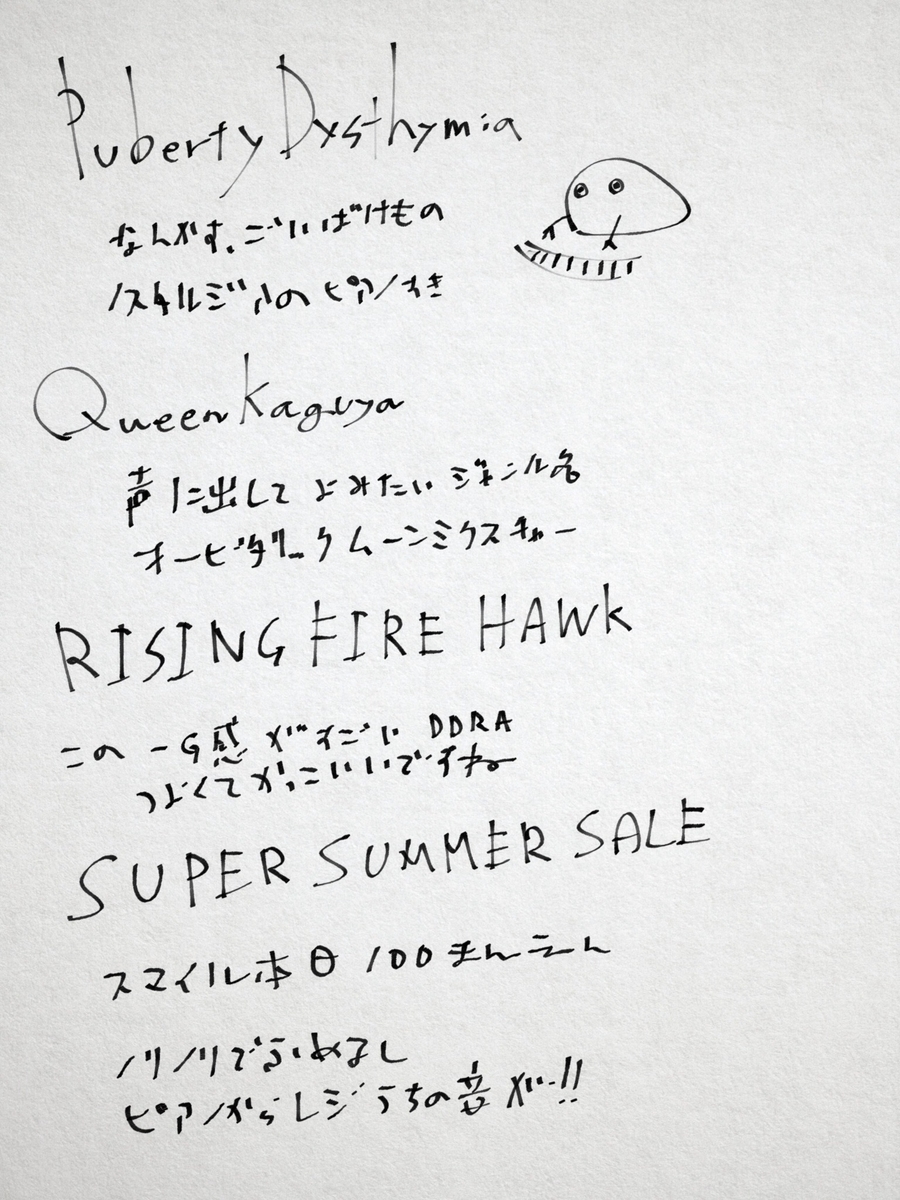 Puberty Dysthymia
なんかすごいばけもの
ノスタルジアのピアノすき
Queen Kaguya
声に出してよみたいジャンル名
オービタリックムーンミクスチャー
RISING FIRE HAWK
この一G感がすごい DDRA
つよくてかっこいいですね
SUPER SUMMER SALE
スマイル本日100まんえん
ノリノリで
ピアノからレジうちの音が!!